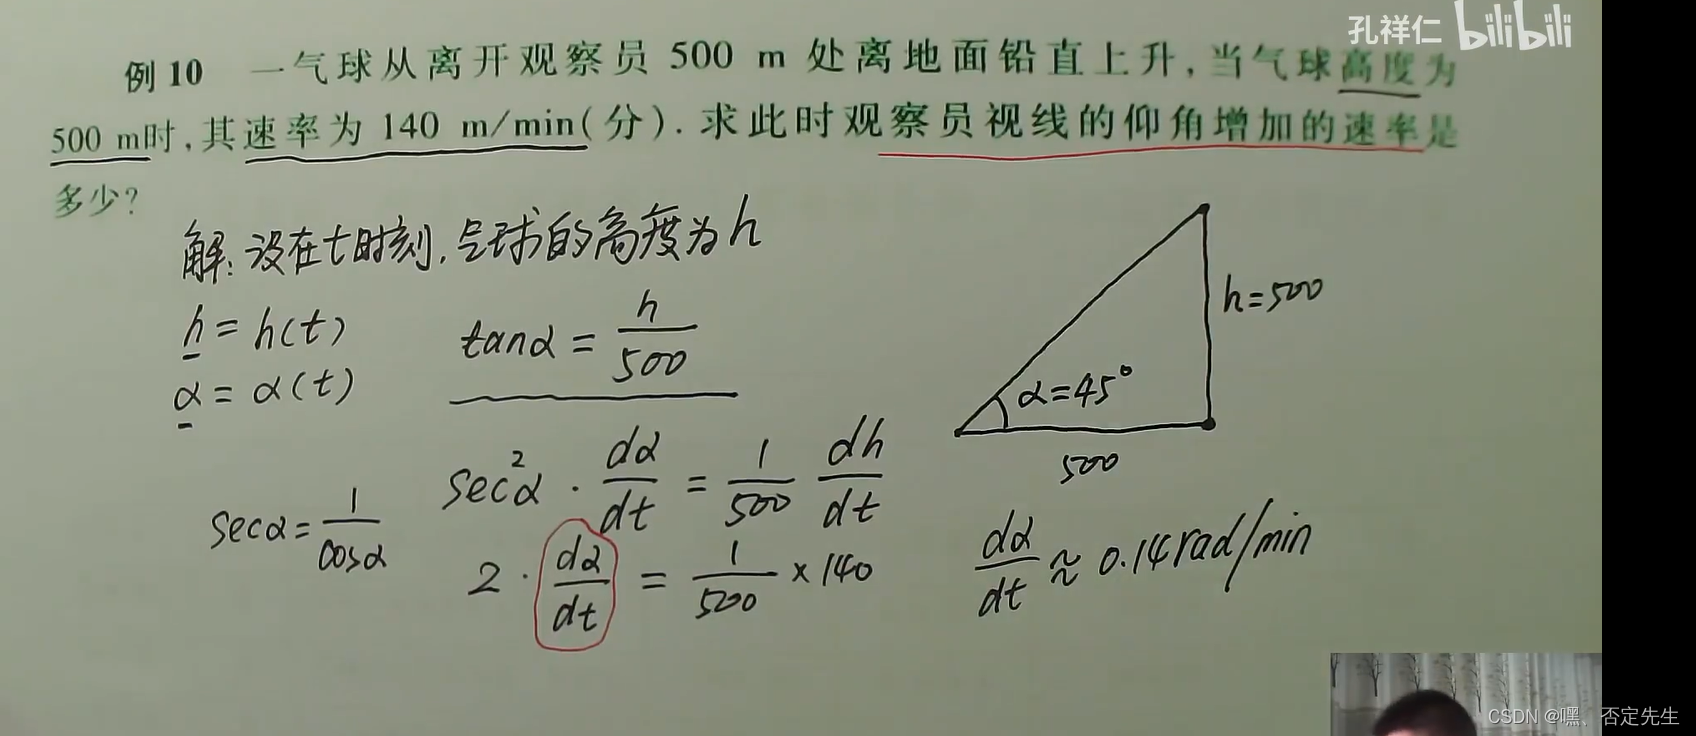 孔祥仁 bilibili
例10 一气球从离开观察员 500 m 处离地面铅直上升,当气球高度为
500 m时,其速率为 140 m/min(分). 求此时观察员视线的仰角增加的速率是
多少?
解:设在t时刻,气球的高度为h
h = h(t)
α = α(t)
tanα = h/500
h=500
α=45°
500
sec²α · dα/dt = 1/500 dh/dt
secα = 1/cosα
2 · dα/dt = 1/500 × 140
dα/dt ≈ 0.14 rad/min
CSDN @嘿、否定先生